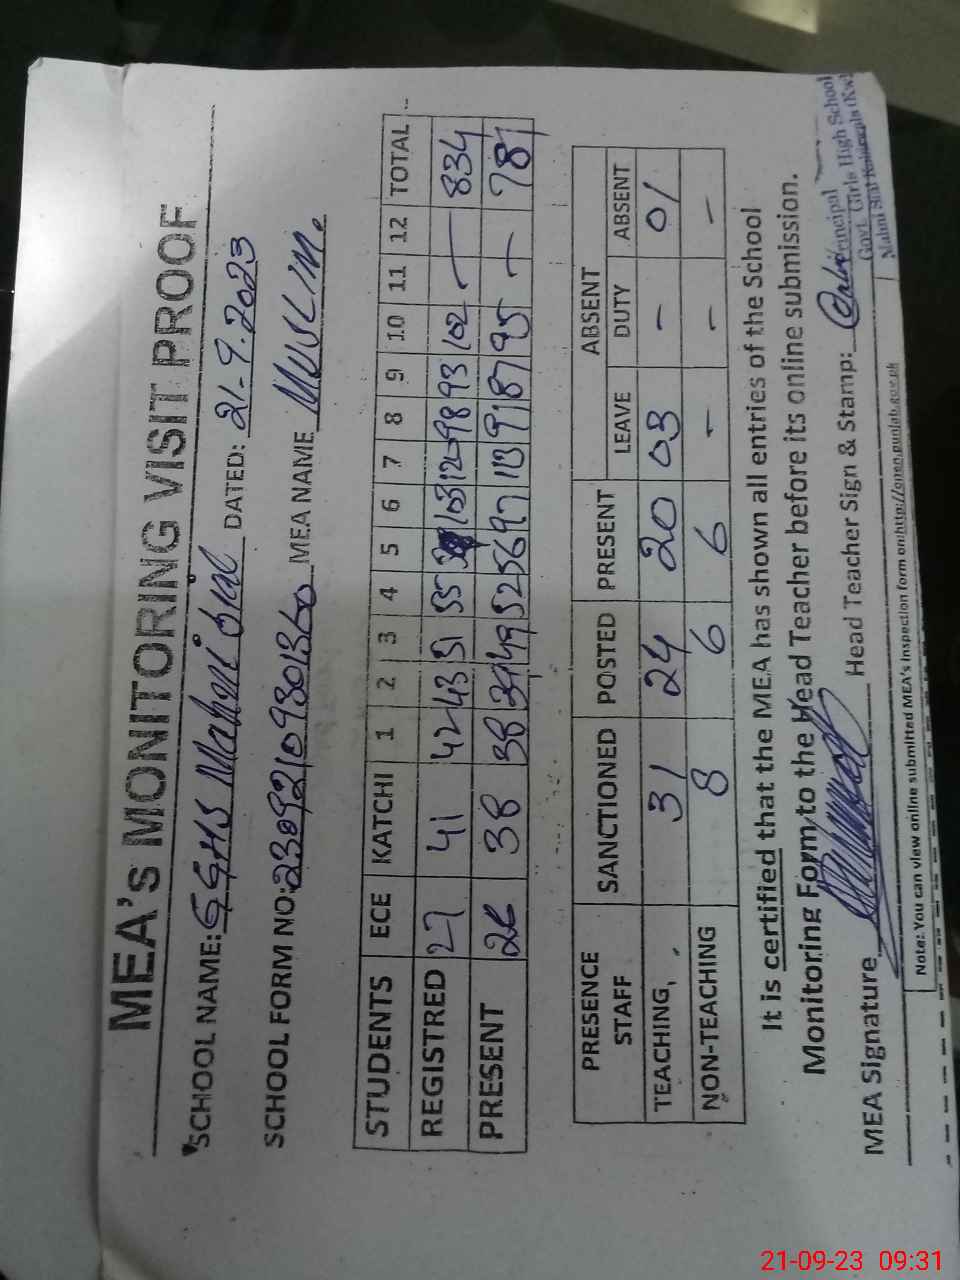 MEA's MONITORING VISIT PROOF
SCHOOL NAME: GGHS Mahni Sial DATED: 21-9.2023
SCHOOL FORM NO: MEA NAME MUSLIM.
STUDENTS ECE KATCHI 1 2 3 4 5 6 7 8 9 10 11 12 TOTAL
REGISTRED 27 41 42 43 51 55 103 120 98 93 102 — 834
PRESENT 38 38 39 49 52 56 97 113 91 87 95 — 787
PRESENCE STAFF SANCTIONED POSTED PRESENT ABSENT
LEAVE DUTY ABSENT
TEACHING, 31 24 20 03 - 01
NON-TEACHING 8 6 6 - - -
It is certified that the MEA has shown all entries of the School
Monitoring Form to the Head Teacher before its online submission.
MEA Signature Head Teacher Sign & Stamp:
Principal
Govt. Girls High School
Mahni Sial
Note: You can view online submitted MEA's Inspection form on:http://open.punjab.gov.pk
21-09-23 09:31